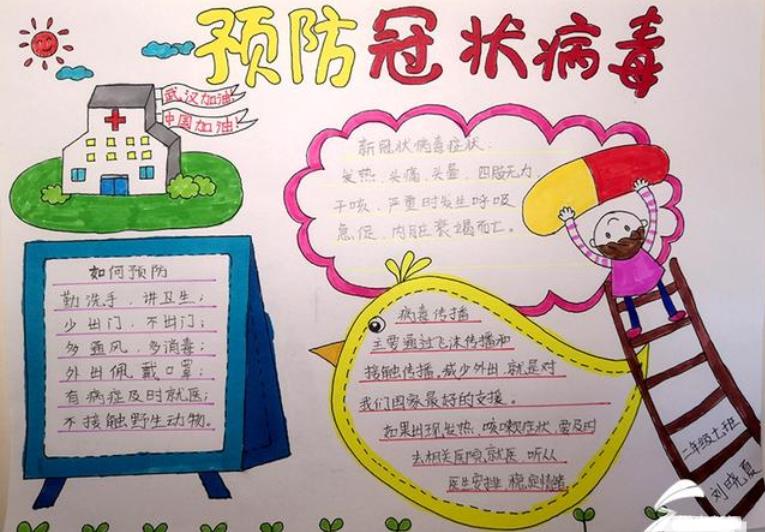 预防冠状病毒
武汉加油!
中国加油!
新冠状病毒症状:
发热、头痛、头晕、四肢无力、
干咳、严重时发生呼吸
急促、内脏衰竭而亡。
如何预防
勤洗手,讲卫生;
少出门,不出门;
多通风,多消毒;
外出佩戴口罩;
有病症及时就医;
不接触野生动物。
病毒传播
主要通过飞沫传播和
接触传播,减少外出,就是对
我们国家最好的支援。
如果出现发热、咳嗽症状,要及时
去相关医院就医,听从
医生安排,稳定情绪
二年级七班
刘晓夏